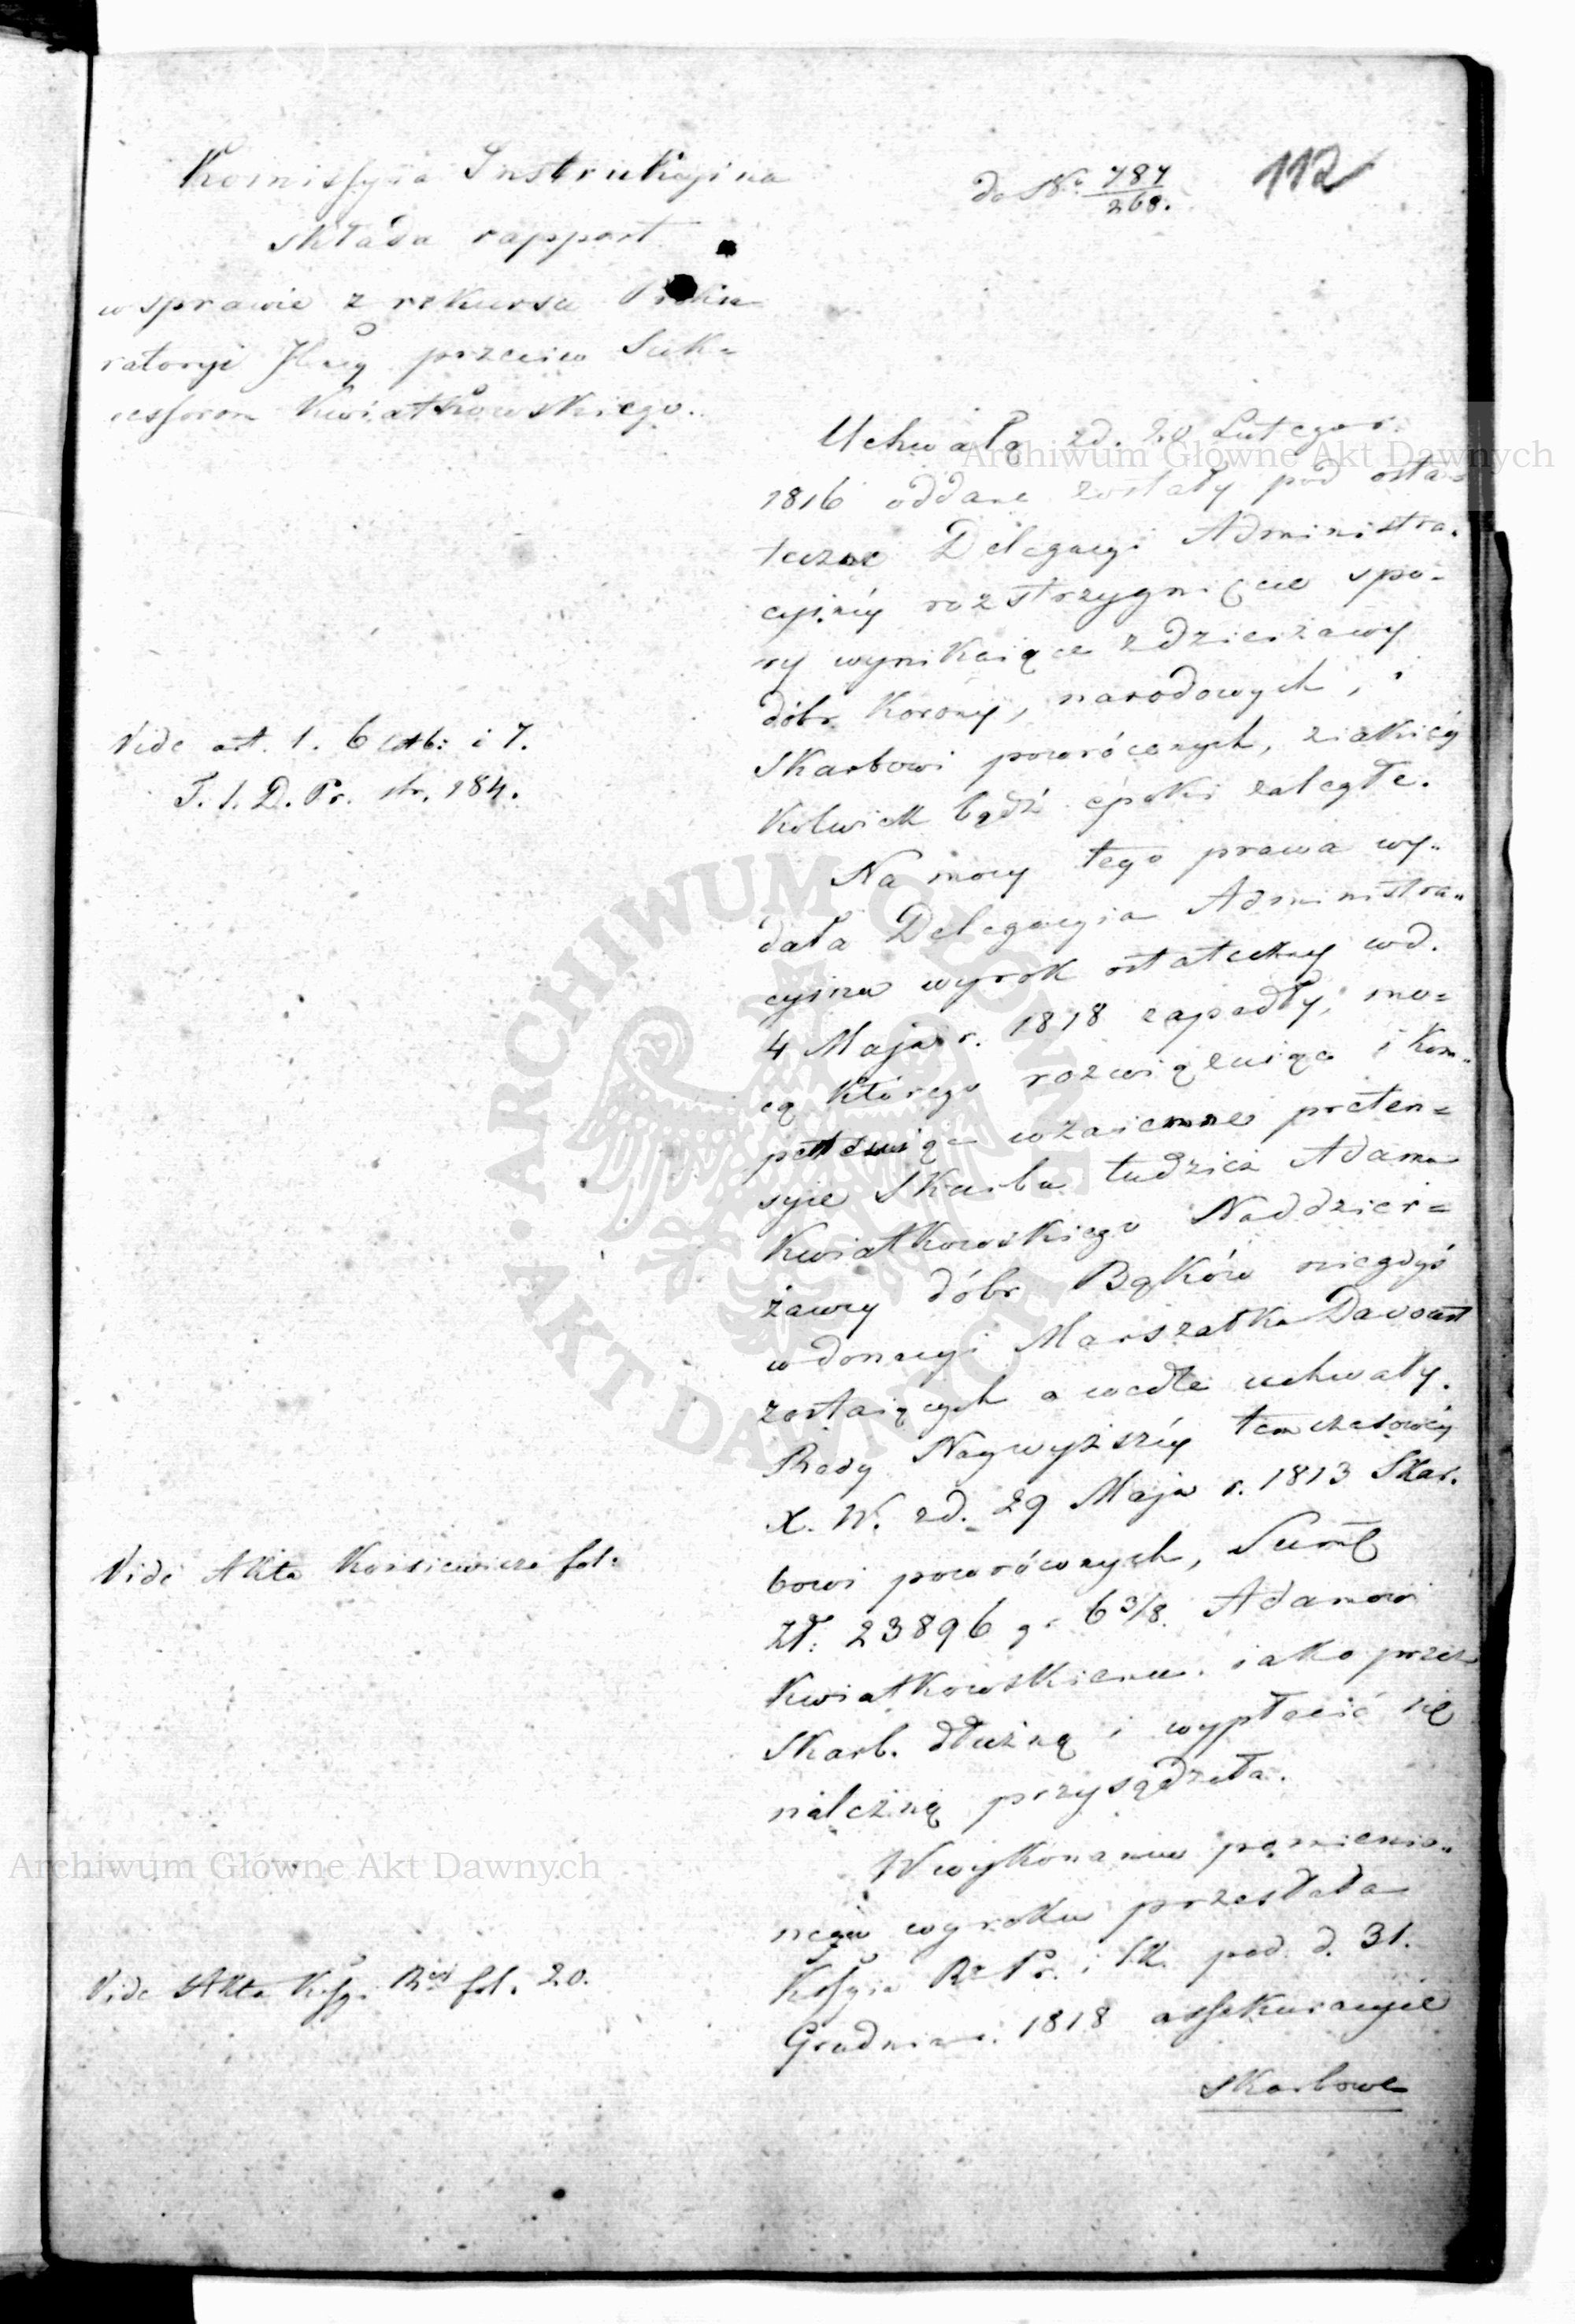 112
do Nr. 787/268.
Komissyia Instrukcyina
składa rapport
w sprawie z rekursu Proku-
ratoryi Jlney przeciw Suk-
cessorom Kwiatkowskiego.
Uchwałą z d. 20 Lutego r.
1816 oddane zostały pod osta-
teczne Delegacyi Administra-
cyinéy rozstrzygnięcie spo-
ry wynikaiące z dzierżawy
dóbr Korony, narodowych, i
Skarbowi powróconych, z iakiéy
kolwiek bądź époki zaległe.
Vide art. 1. 6 litt b: i 7.
T. I. D. Pr. str. 184.
Na mocy tego prawa wy-
dała Delegacyia Administra-
cyina wyrok ostateczny w d.
4 Maja r. 1818 zapadły, mo-
cą którego rozwiązuiąc i kom-
pensuiąc wzaiemne preten-
syie Skarbu tudzież Adama
Kwiatkowskiego Naddzier-
żawcy dóbr Bąków niegdyś
w donacyi Marszałka Davoust
zostaiących a wedle uchwały
Rady Naywyższéy tymczasowéy
X. W. z d. 29 Maja r. 1813 Skar-
bowi powróconych, Summę
Zł: 23896 gr 6 3/8. Adamowi
Kwiatkowskiemu iako przez
Skarb dłużną i wypłacić się
należną przysądziła.
Vide Akta Kossiewicza fol:
W wykonaniu pomienio-
nego wyroku przesłała
Kssyia R. Pr. i Sk. pod d. 31.
Grudnia 1818 assekuracyie
Skarbowe
Vide Akta Kssy. Rząd fol. 20.
Archiwum Główne Akt Dawnych
ARCHIWUM GŁÓWNE AKT DAWNYCH
Archiwum Główne Akt Dawnych